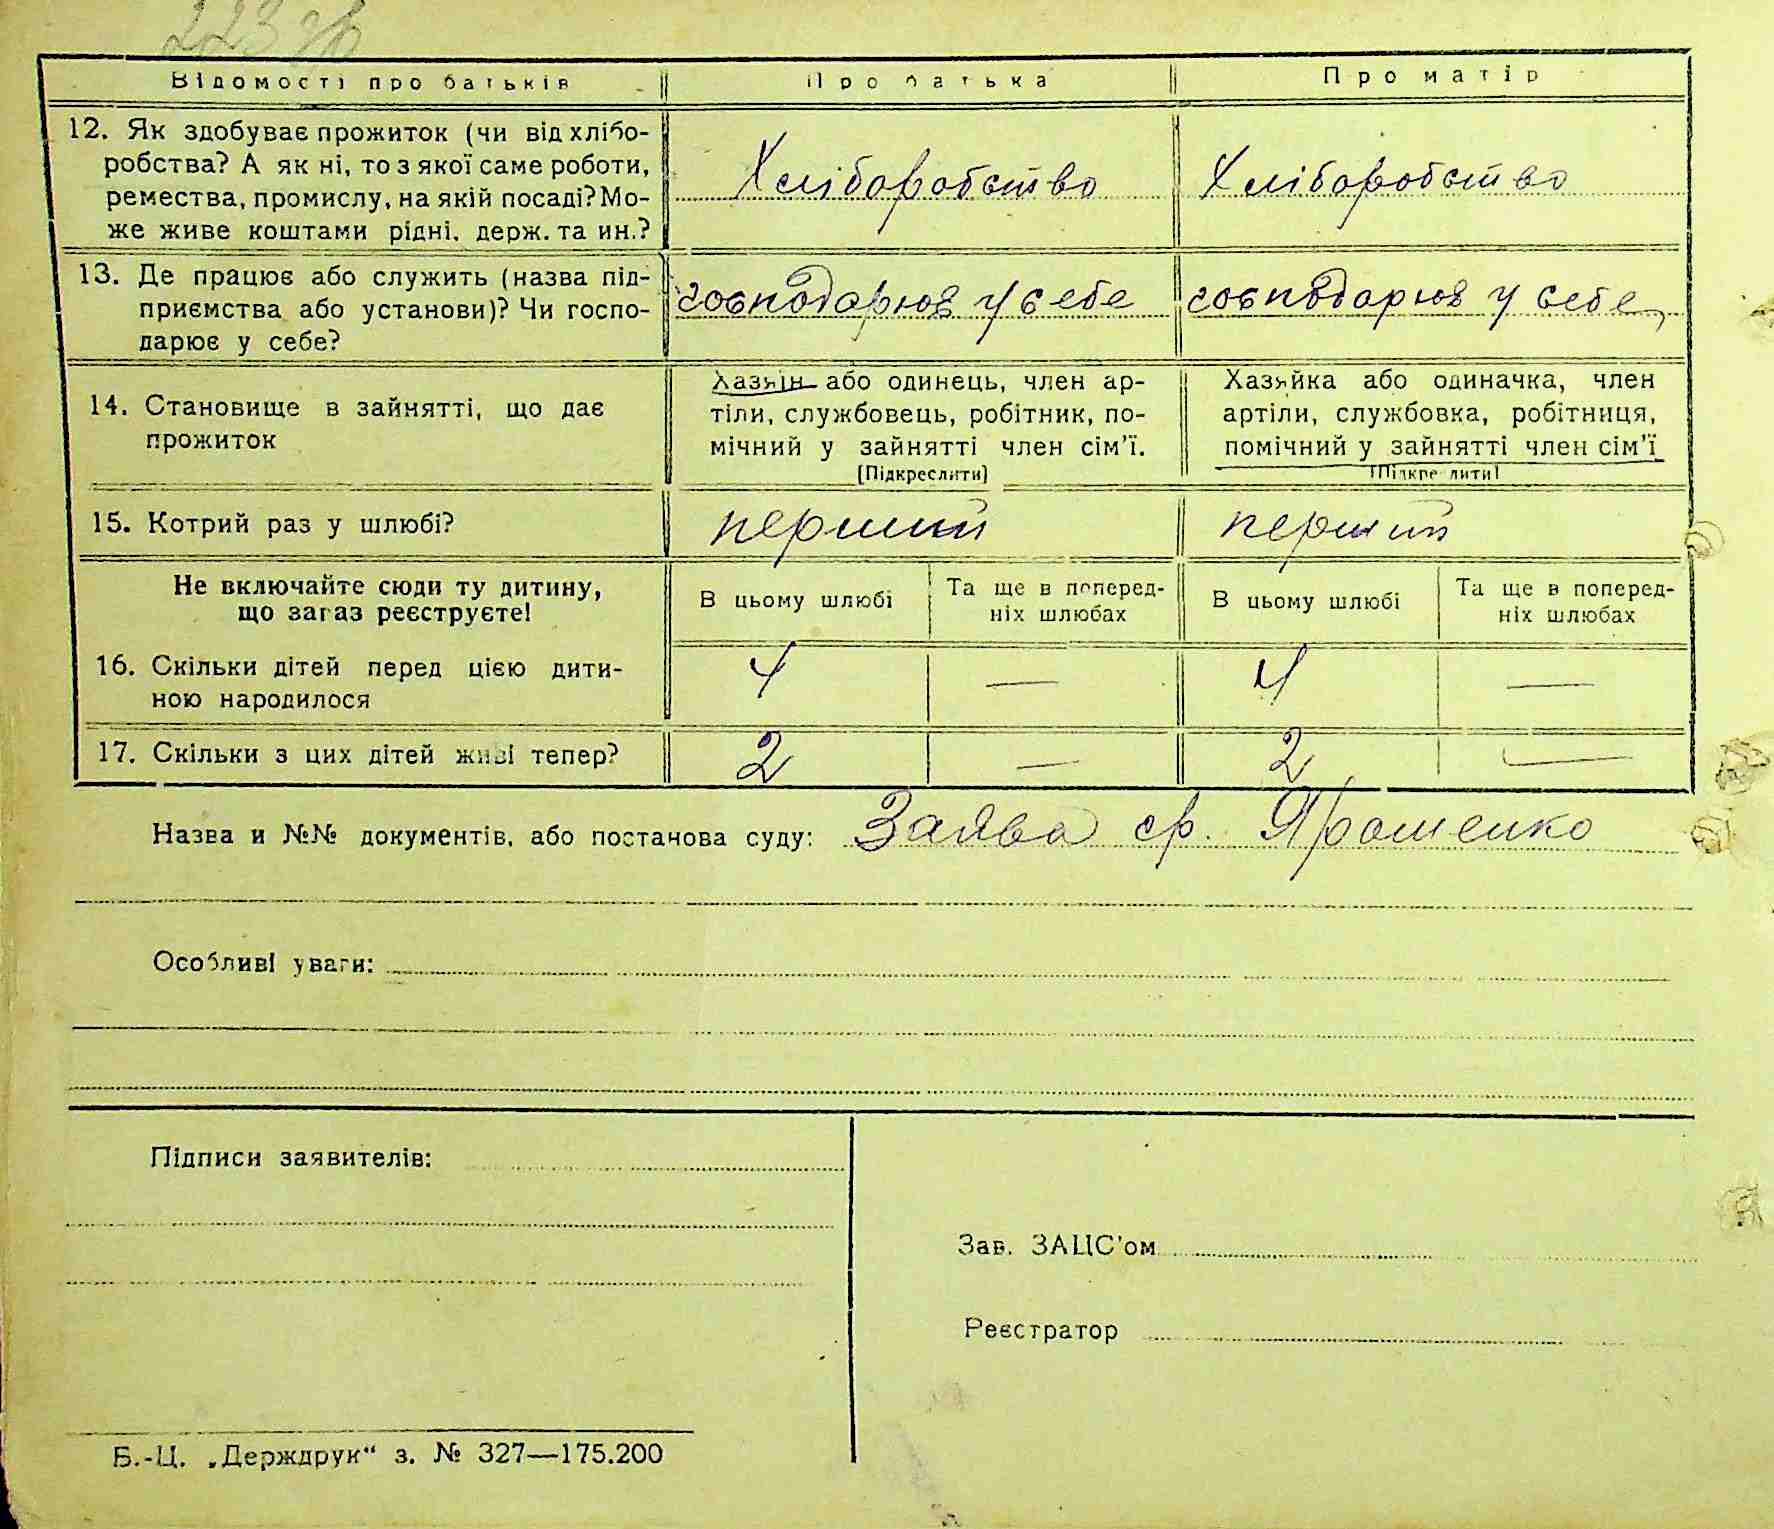 223 зв
Відомості про батьків Про батька Про матір
12. Як здобуває прожиток (чи від хлібо-
робства? А як ні, то з якої саме роботи,
ремества, промислу, на якій посаді? Мо-
же живе коштами рідні, держ. та ин.?
Хліборобство Хліборобство
13. Де працює або служить (назва під-
приємства або установи)? Чи госпо-
дарює у себе?
господарює у себе господарює у себе
14. Становище в зайнятті, що дає
прожиток
Хазяїн або одинець, член ар-
тіли, службовець, робітник, по-
мічний у зайнятті член сім'ї.
(Підкреслити)
Хазяйка або одиначка, член
артіли, службовка, робітниця,
помічний у зайнятті член сім'ї
(Підкреслити)
15. Котрий раз у шлюбі? перший перший
Не включайте сюди ту дитину,
що зараз реєструєте!
В цьому шлюбі Та ще в поперед-
ніх шлюбах
В цьому шлюбі Та ще в поперед-
ніх шлюбах
16. Скільки дітей перед цією дити-
ною народилося
4 — 4 —
17. Скільки з цих дітей живі тепер? 2 — 2 —
Назва и №№ документів, або постанова суду: Заява гр. Ярошенко
Особливі уваги:
Підписи заявителів:
Зав. ЗАЦС'ом
Реєстратор
Б.-Ц. „Держдрук“ з. № 327—175.200